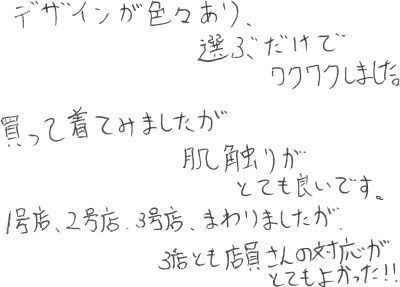 デザインが色々あり、
選ぶだけで
ワクワクしました。
買って着てみましたが
肌触りが
とても良いです。
1号店、2号店、3号店、まわりましたが、
3店とも店員さんの対応が
とてもよかった!!